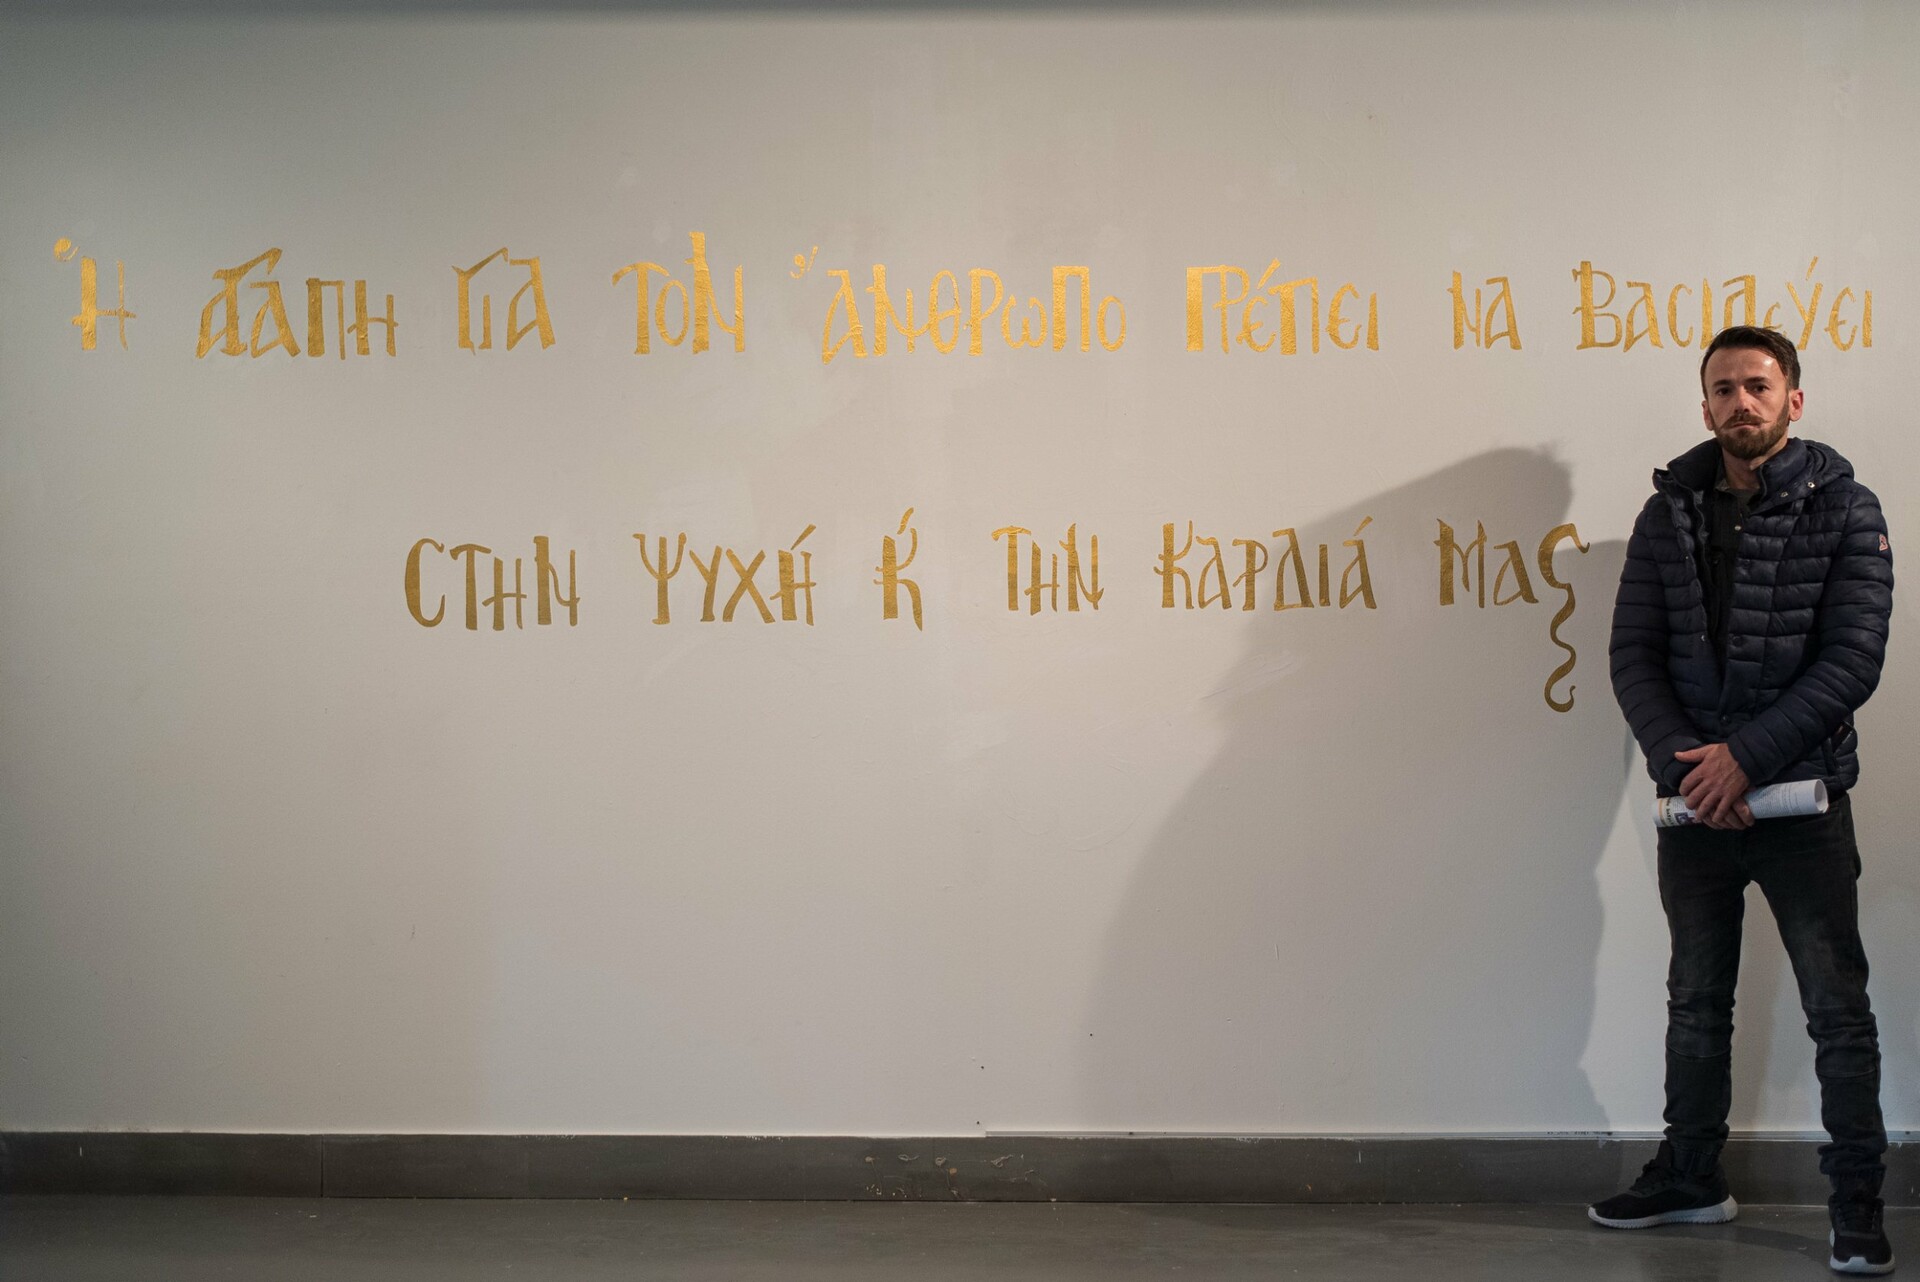 Ἡ ἀγάπη γιὰ τὸν ἄνθρωπο πρέπει νὰ βασιλεύει
στὴν ψυχή κ' τὴν καρδιά μας